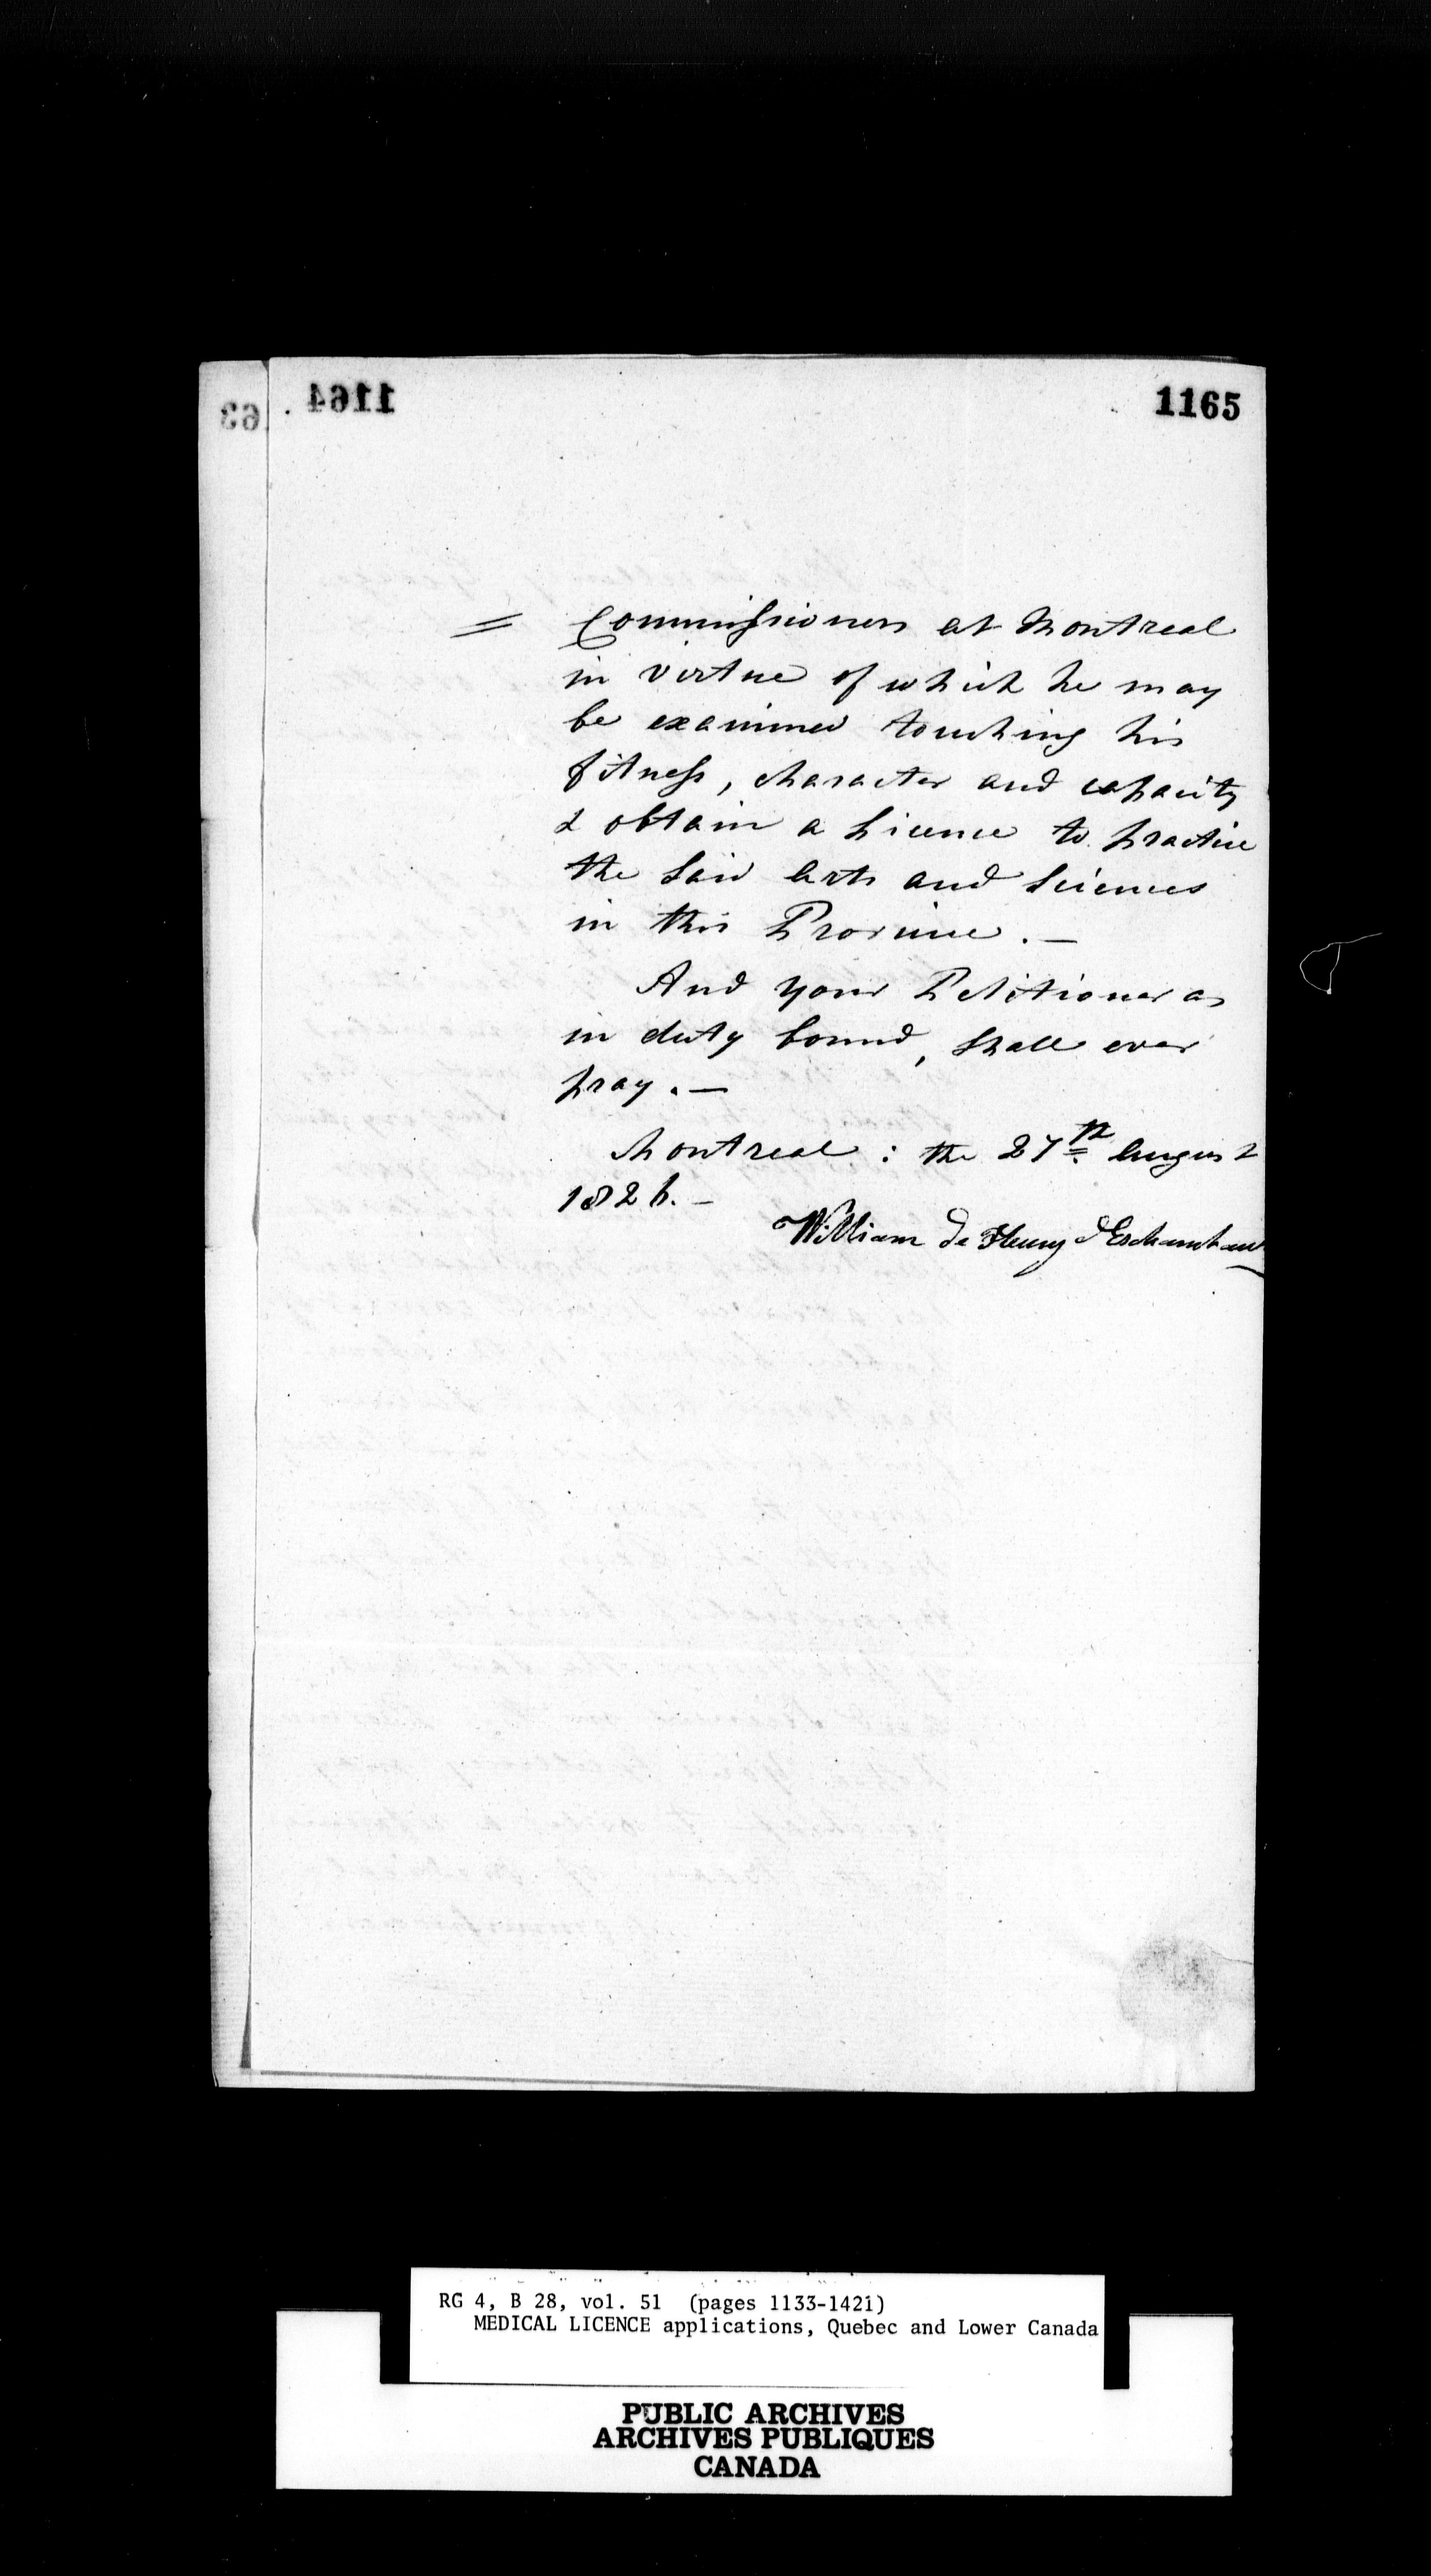 1165
= Commissioners at Montreal
in virtue of which he may
be examined touching his
fitness, character and capacity
& obtain a Licence to practice
the said Arts and Sciences
in this Province. —
And your Petitioner as
in duty bound, shall ever
pray. —
Montreal : the 27th August
1826. —
William de Fleury d'Eschambault
RG 4, B 28, vol. 51 (pages 1133-1421)
MEDICAL LICENCE applications, Quebec and Lower Canada
PUBLIC ARCHIVES
ARCHIVES PUBLIQUES
CANADA